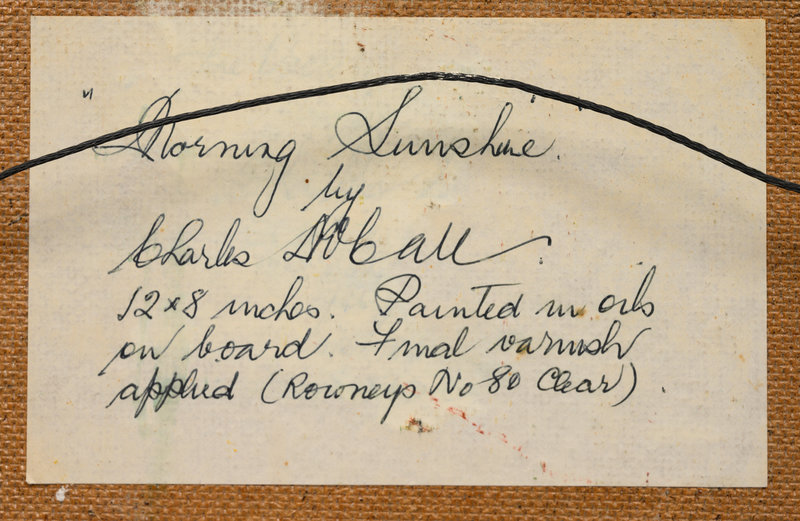 "Morning Sunshine"
by
Charles McCall.
12 x 8 inches. Painted in oils
on board. Final varnish
applied (Rowneys No 80 Clear).